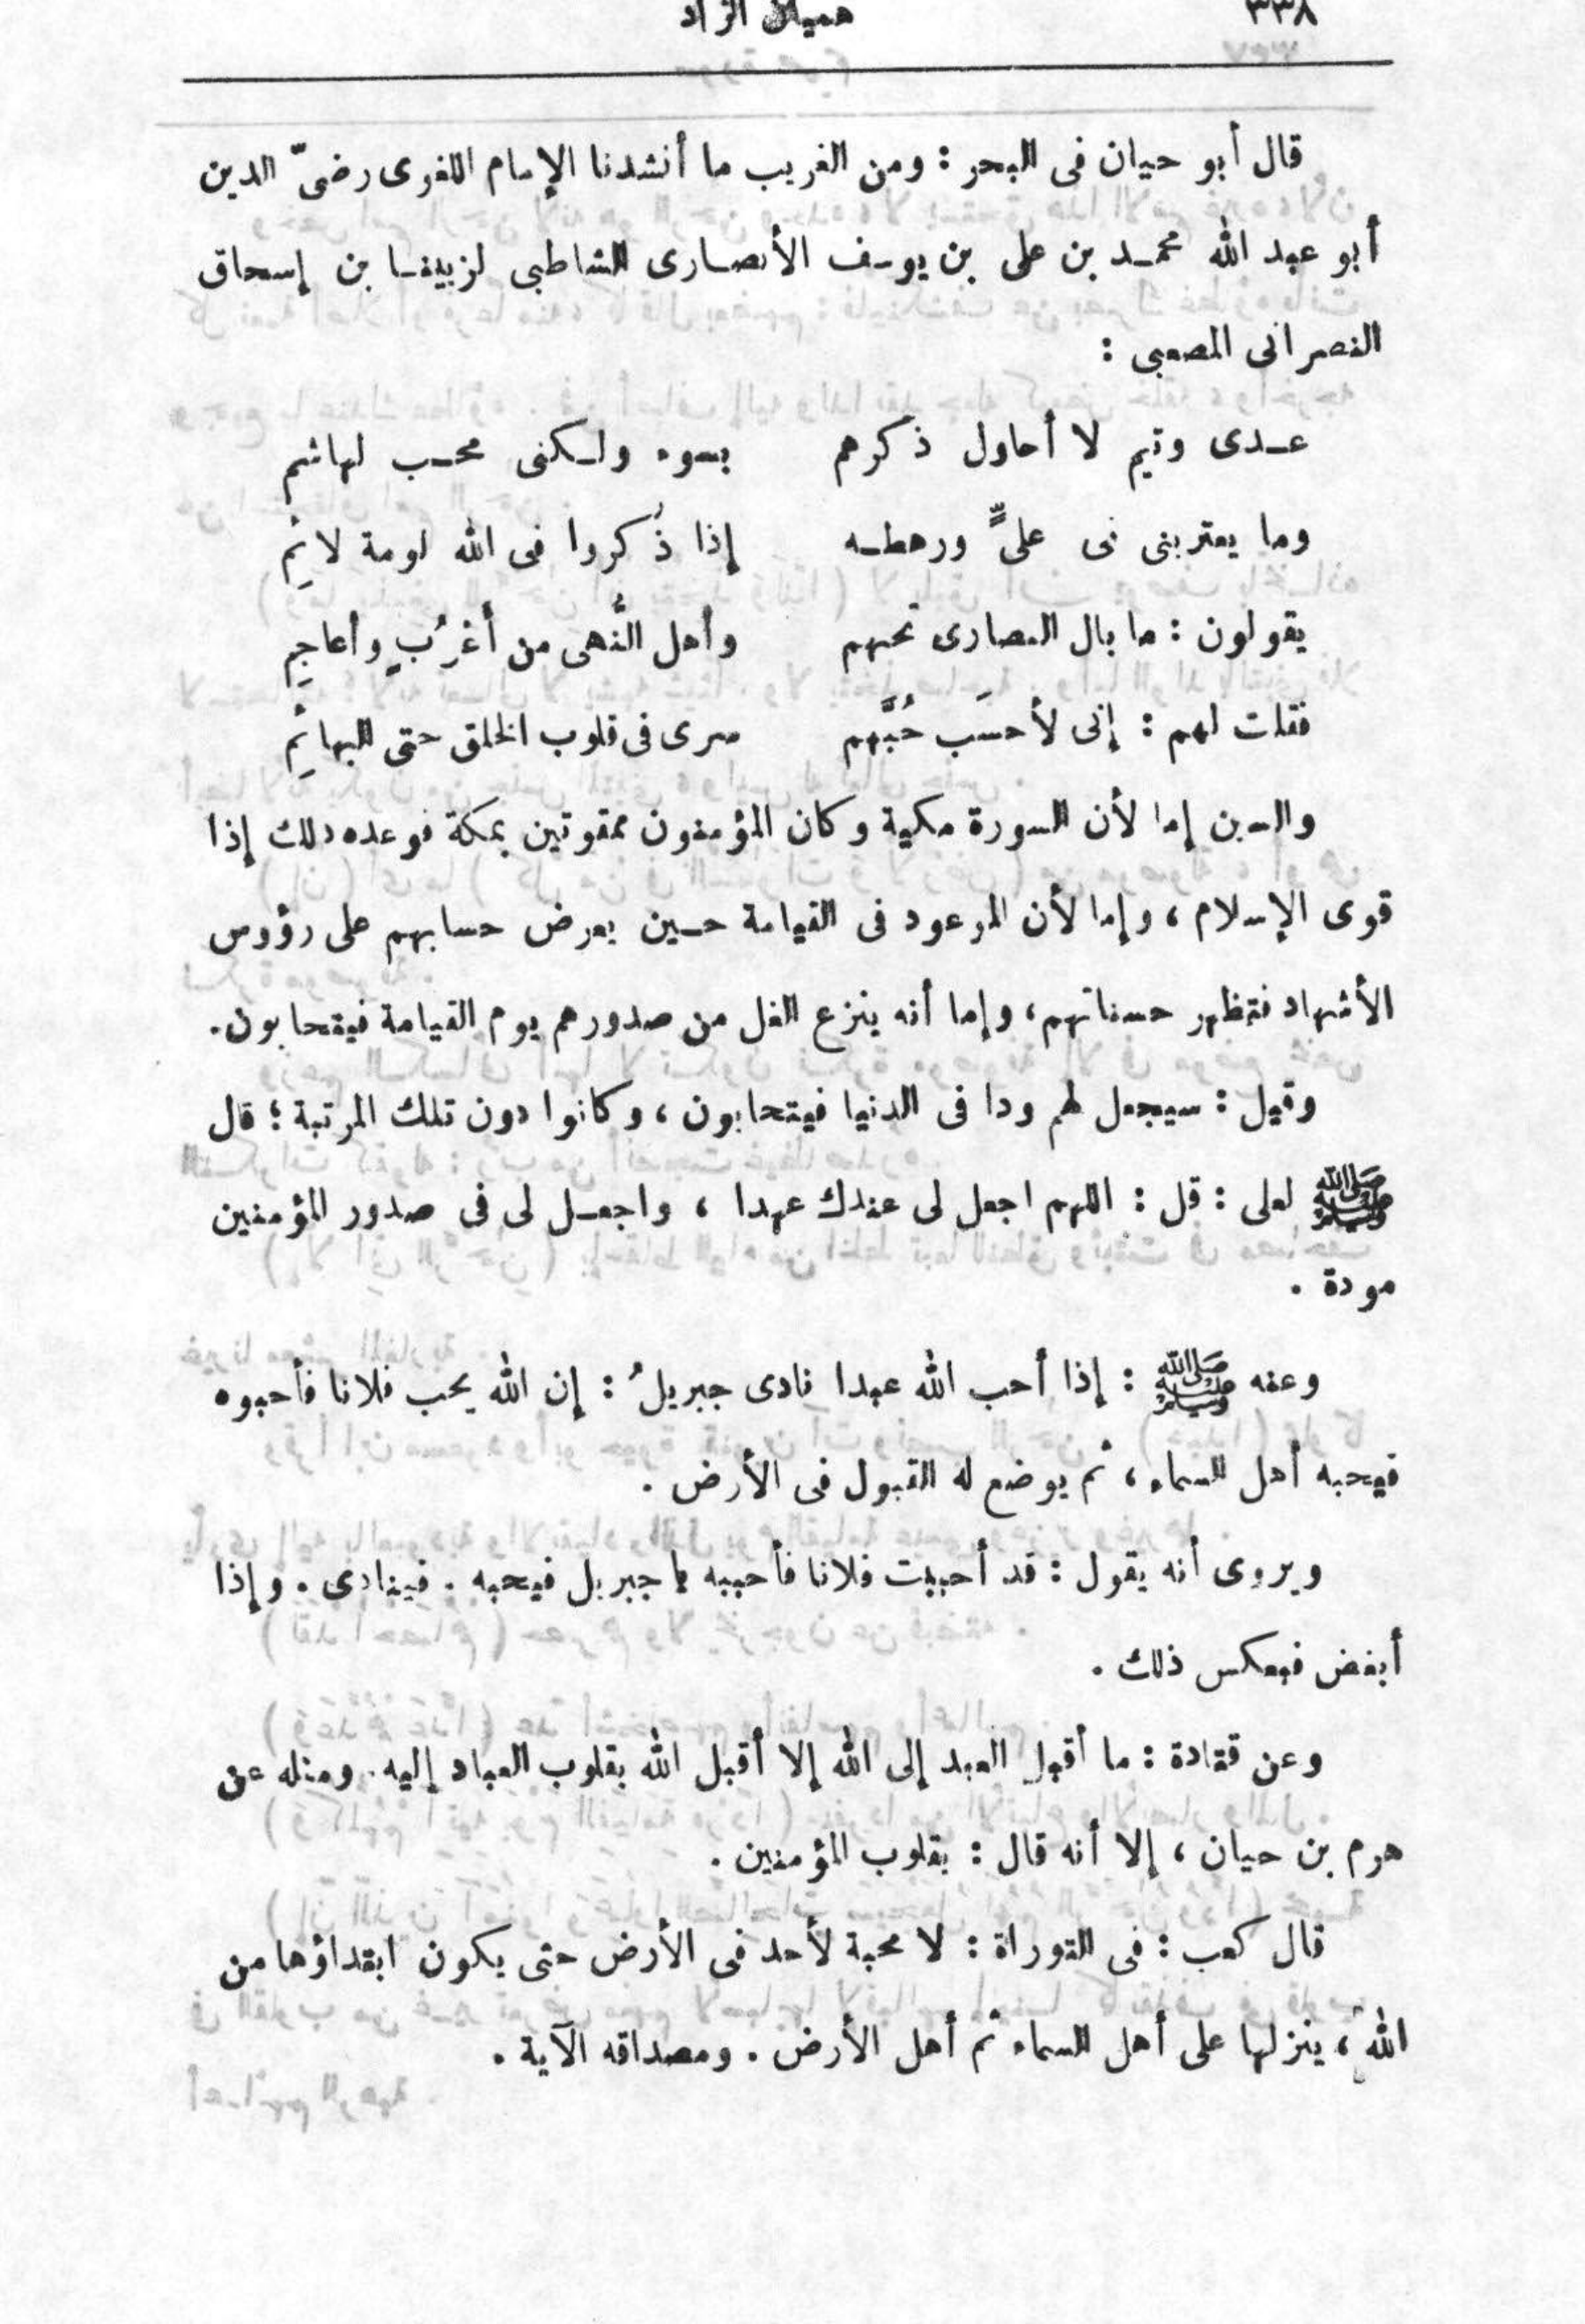 ٣٣٨
هميان الزاد
قال أبو حيان فى البحر : ومن الغريب ما أنشدنا الإمام اللغوى رضىّ الدين
أبو عبد الله محمد بن على بن يوسف الأنصارى الشاطبى لزبينا بن إسحاق
النصرانى المصعبى :
عدى وتيم لا أحاول ذكرهم بسوء ولكنى محب لهاشم
وما يعتربنى فى علىٍّ ورهطه إذا ذُكروا فى الله لومة لائِم
يقولون : ما بال النصارى تحبهم وأهل النُّهى من أغرُبٍ وأعاجِم
فقلت لهم : إنى لأحسَب حُبَّهم سرى فى قلوب الخلق حتى البهائِم
والسين إما لأن السورة مكية وكان المؤمنون ممقوتين بمكة فوعده ذلك إذا
قوى الإسلام ، وإما لأن الموعود فى القيامة حين يعرض حسابهم على رؤوس
الأشهاد فتظهر حسناتهم ، وإما أنه ينزع الغل من صدورهم يوم القيامة فيتحابون .
وقيل : سيجعل لهم ودا فى الدنيا فيتحابون ، وكانوا دون تلك المرتبة ؛ قال
ﷺ لعلى : قل : اللهم اجعل لى عندك عهدا ، واجعل لى فى صدور المؤمنين
مودة .
وعنه ﷺ : إذا أحب الله عبدا نادى جبريلُ : إن الله يحب فلانا فأحبوه
فيحبه أهل السماء ، ثم يوضع له القبول فى الأرض .
ويروى أنه يقول : قد أحببت فلانا فأحببه يا جبريل فيحبه . فينادى . وإذا
أبغض فبعكس ذلك .
وعن قتادة : ما أقبل العبد إلى الله إلا أقبل الله بقلوب العباد إليه . ومثله عن
هرم بن حيان ، إلا أنه قال : بقلوب المؤمنين .
قال كعب : فى التوراة : لا محبة لأحد فى الأرض حتى يكون ابتداؤها من
الله ، ينزلها على أهل السماء ثم أهل الأرض . ومصداقه الآية .